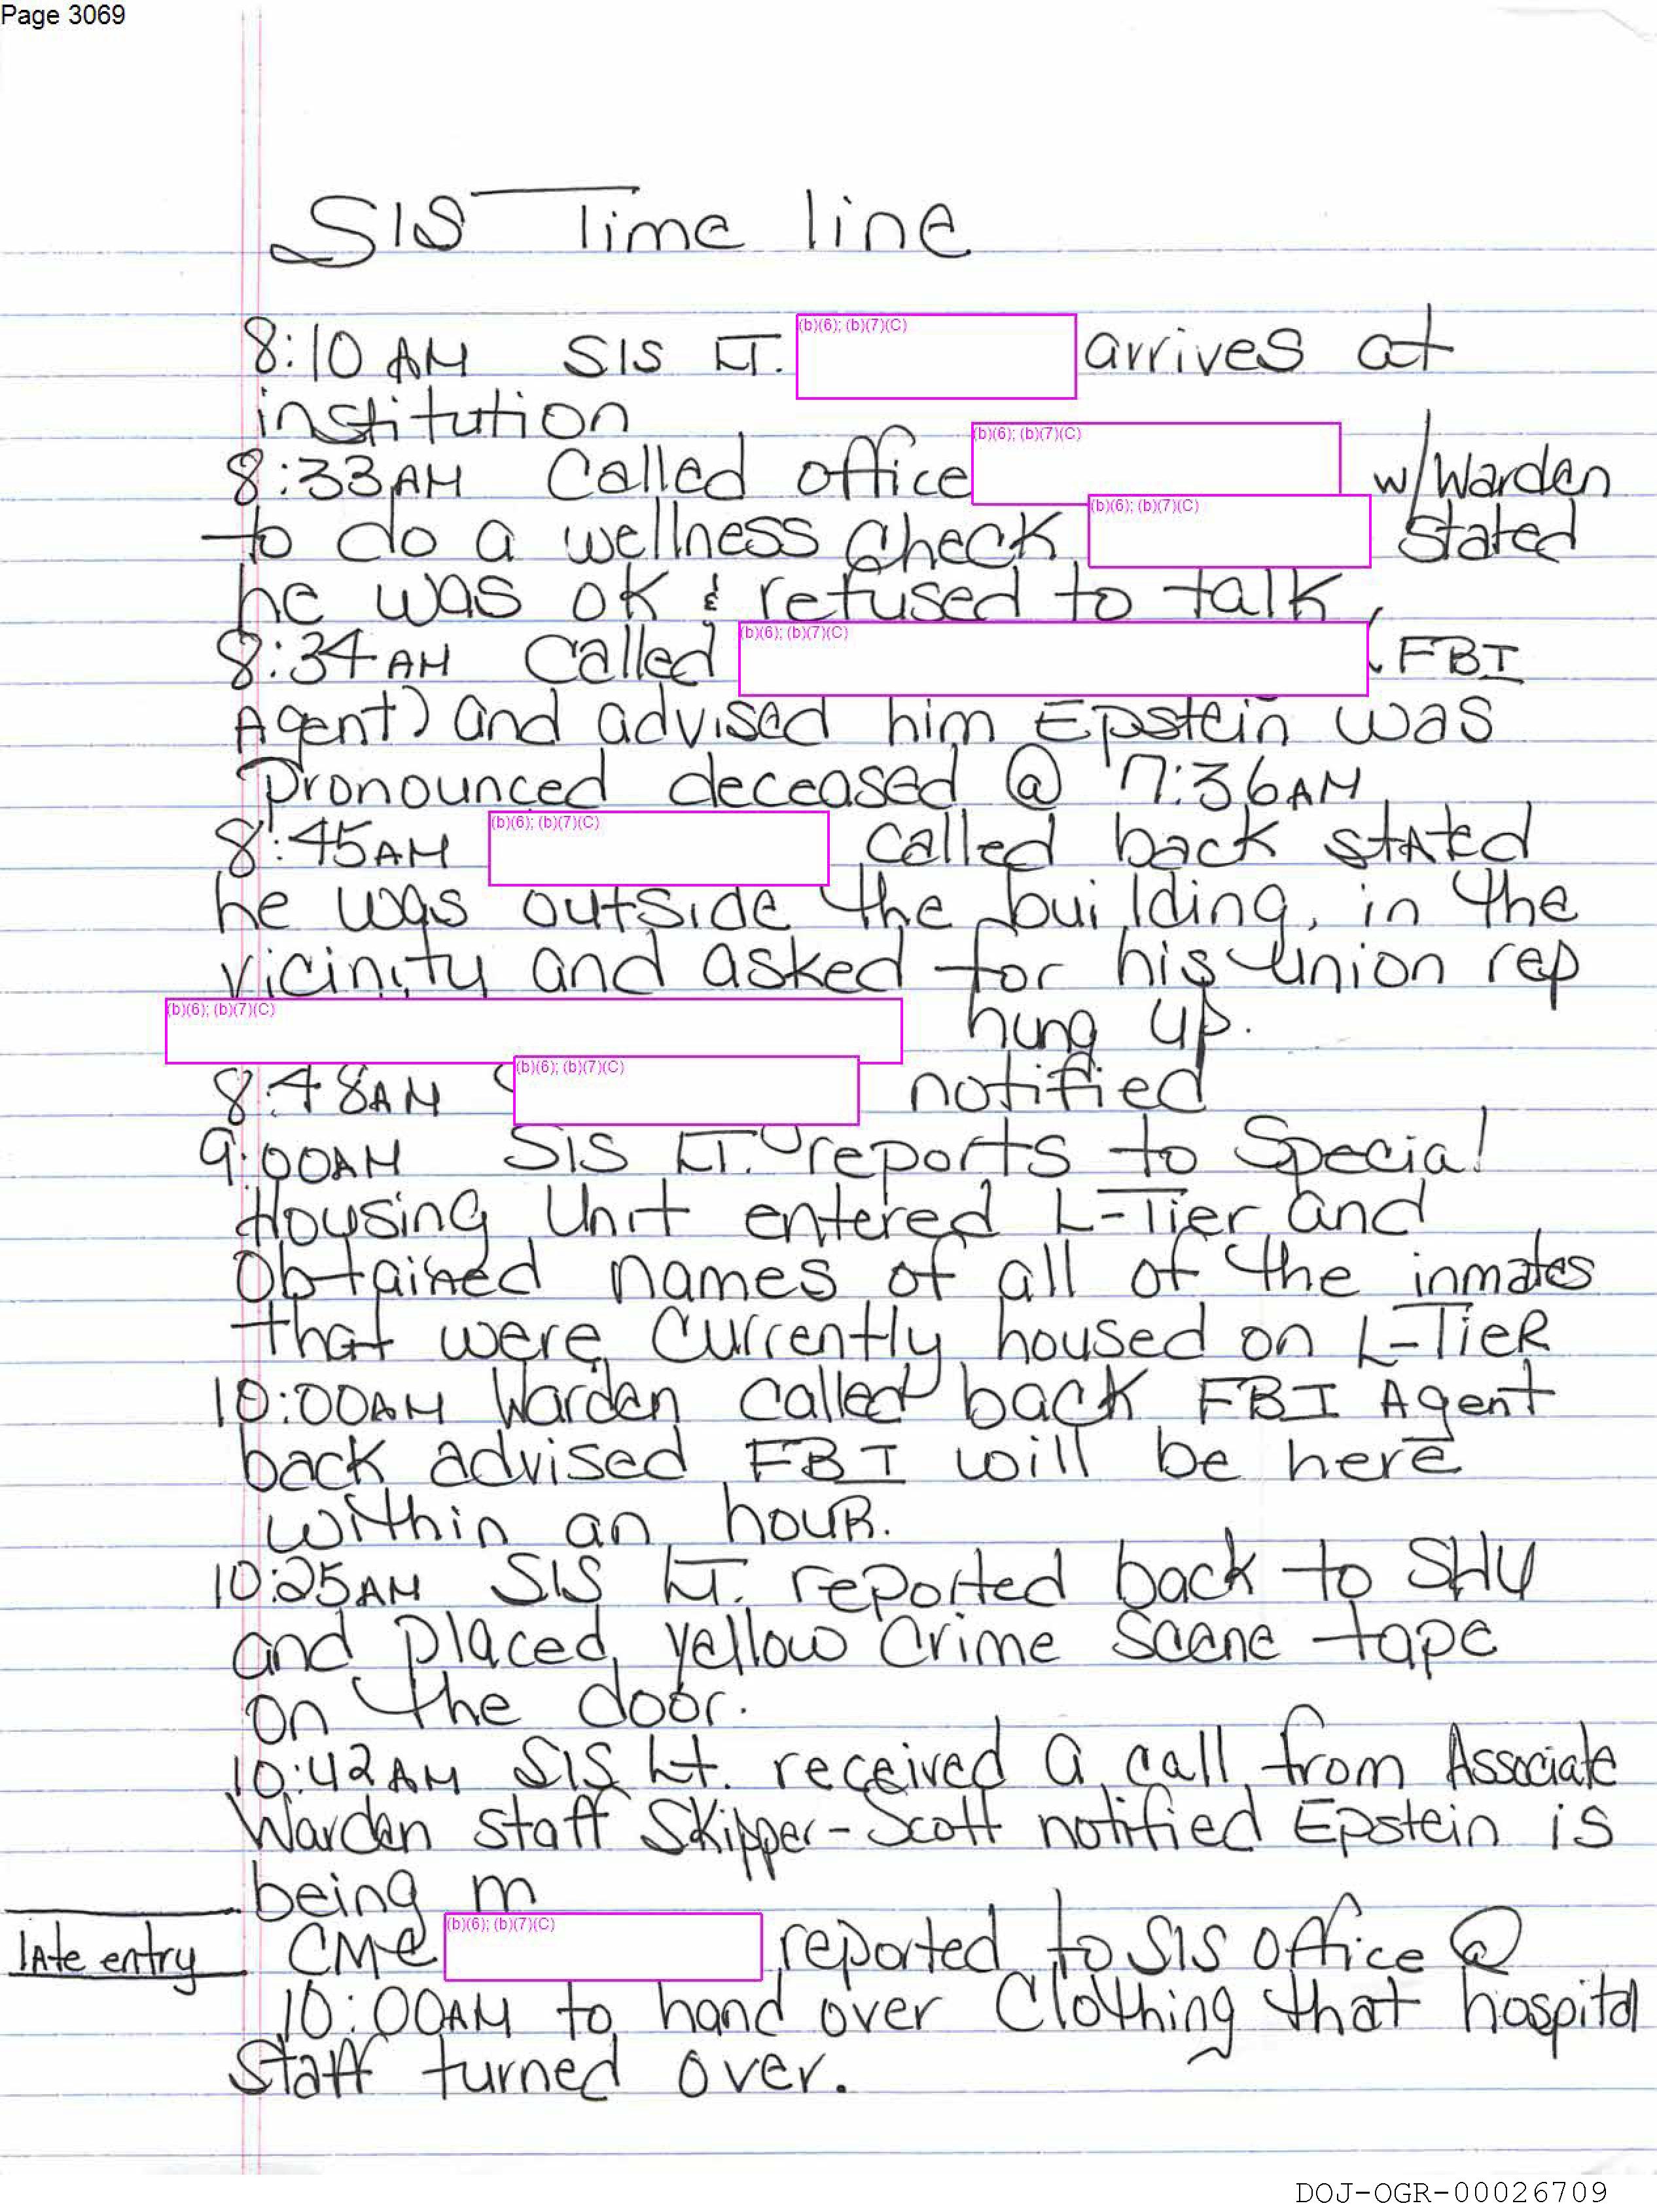 Page 3069
SIS Time line
8:10 AM SIS LT. (b)(6); (b)(7)(C) arrives at
institution
8:33AM Called office (b)(6); (b)(7)(C) w/Warden
to do a wellness check (b)(6); (b)(7)(C) stated
he was ok & refused to talk,
8:34AM Called (b)(6); (b)(7)(C) FBI
Agent) and advised him Epstein was
pronounced deceased @ 7:36AM
8:45AM (b)(6); (b)(7)(C) called back stated
he was outside the building, in the
vicinity and asked for his union rep
(b)(6); (b)(7)(C) hung up.
8:48AM (b)(6); (b)(7)(C) notified
9:00AM SIS LT. reports to Special
Housing Unit entered L-Tier and
Obtained names of all of the inmates
that were currently housed on L-Tier
10:00AM Warden called back FBI Agent
back advised FBI will be here
within an hour.
10:25AM SIS LT. reported back to SHU
and placed yellow Crime Scene tape
on the door.
10:42AM SIS Lt. received a call from Associate
Warden staff Skipper-Scott notified Epstein is
being m
late entry CMC (b)(6); (b)(7)(C) reported to SIS office @
10:00AM to hand over Clothing that hospital
Staff turned over.
DOJ-OGR-00026709